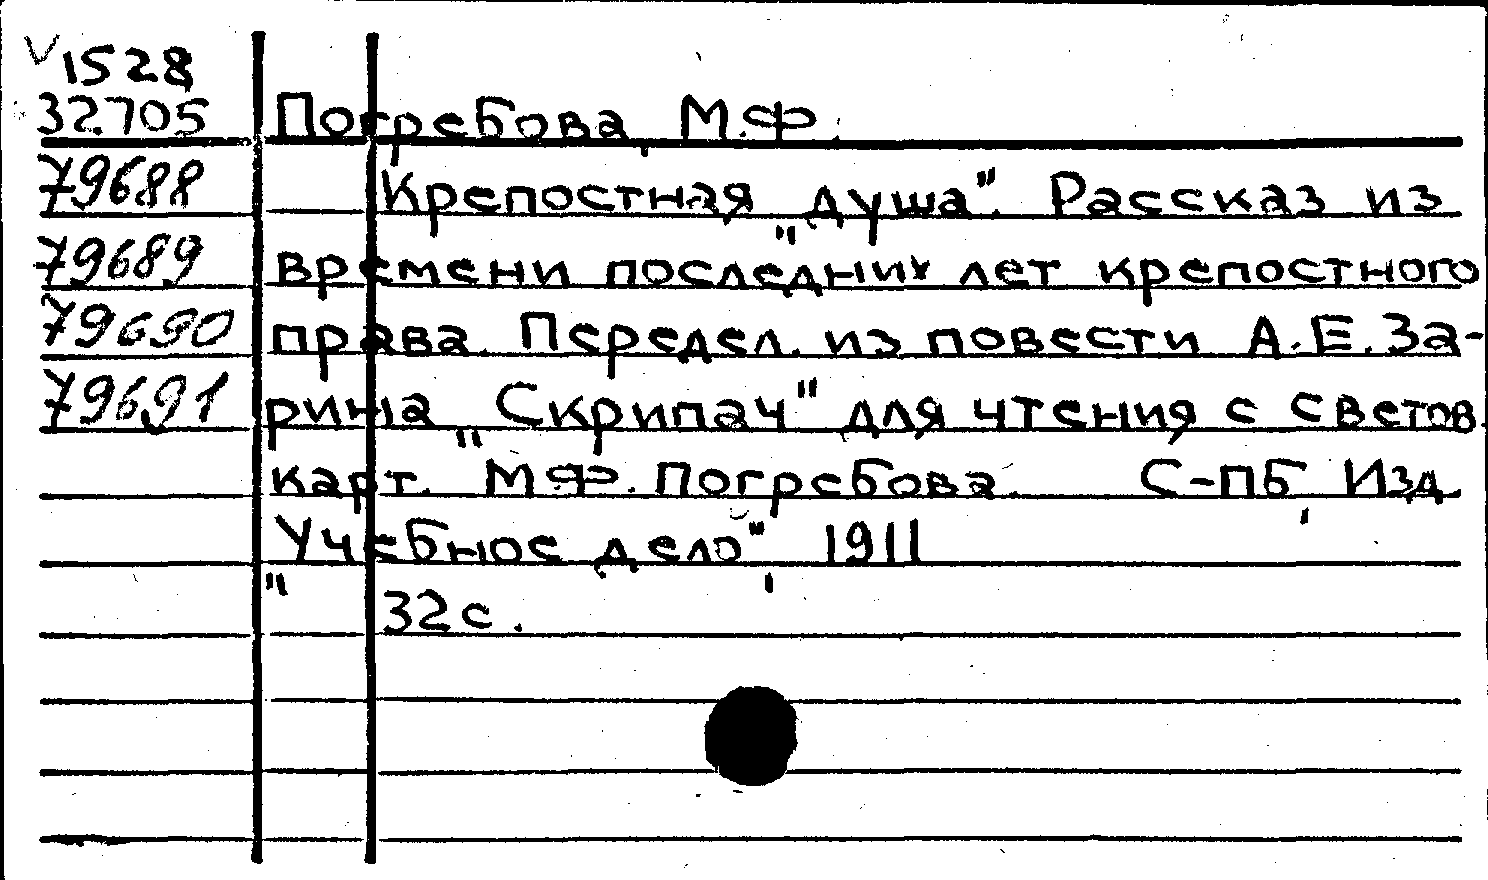 V 1528
32.705 Погребова, М.Ф.
79688 Крепостная „душа". Рассказ из
79689 времени последних лет крепостного
79690 права. Передел. из повести А.Е.За-
79691 рина „Скрипач" для чтения с светов.
карт. М.Ф. Погребова. С-ПБ, Изд.
„Учебное дело", 1911
32с.